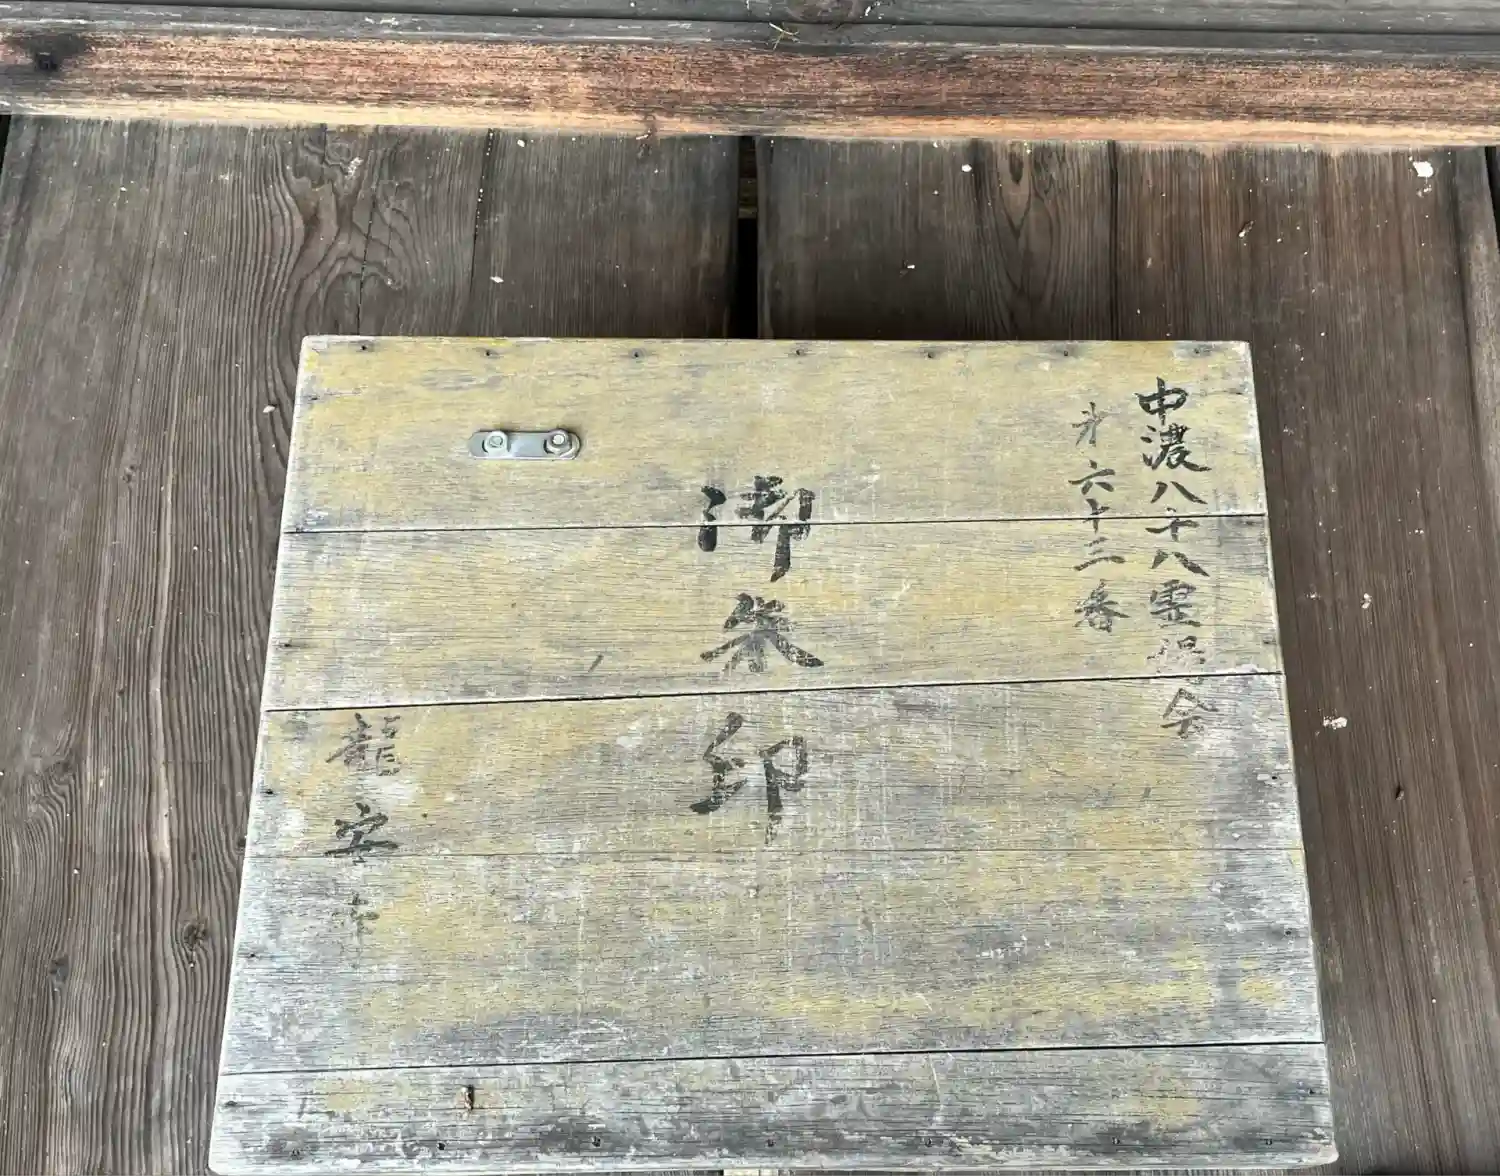 中濃八十八霊場会
第六十三番
御朱印
龍安寺